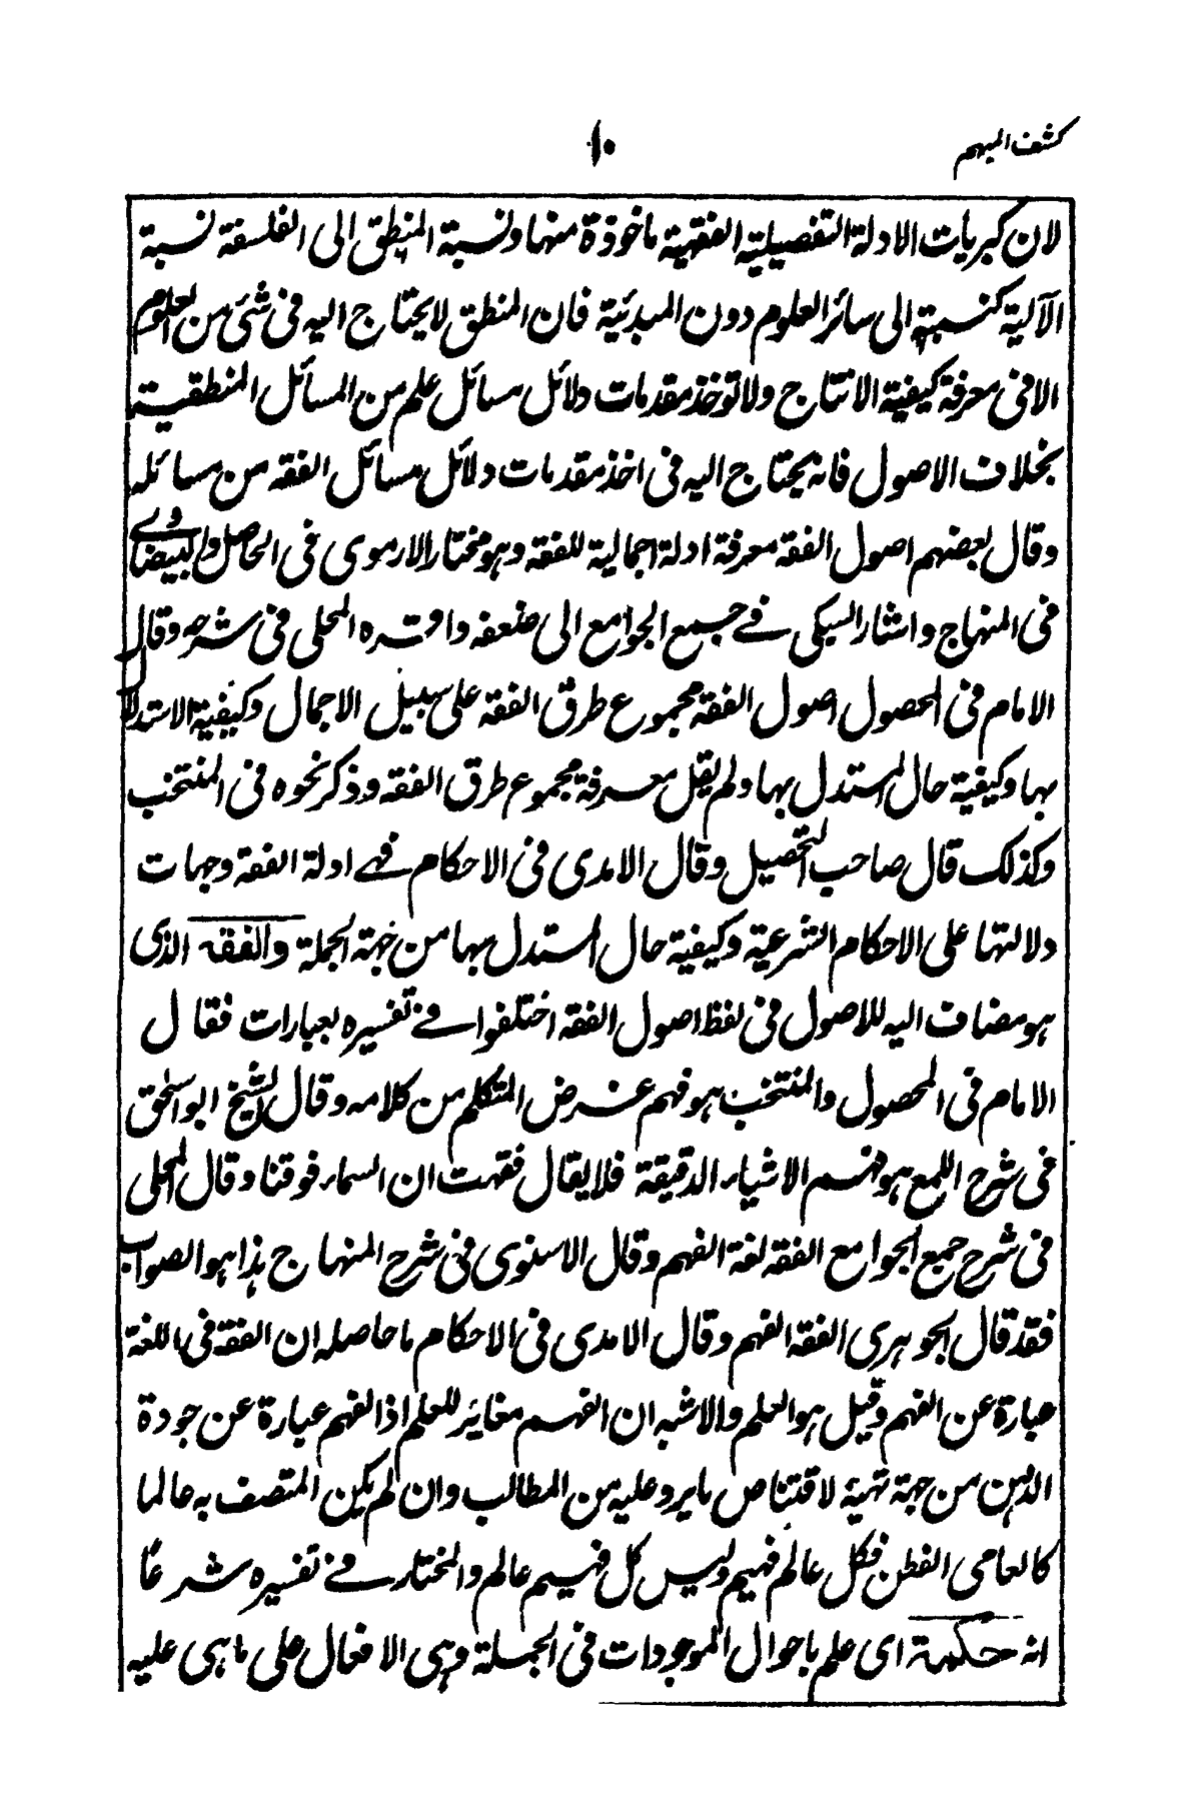 كشف المبهم
١٠
لان كبريات الادلة التفصيلية الفقهية ماخوذة منها ونسبة المنطق الى الفلسفة نسبة
الآلية كنسبته الى سائر العلوم دون المبدئية فان المنطق لا يحتاج اليه فى شئ من العلوم
الا فى معرفة كيفية الانتاج ولا توخذ مقدمات دلائل مسائل علم من المسائل المنطقية
بخلاف الاصول فانه يحتاج اليه فى اخذ مقدمات دلائل مسائل الفقه من مسائله
وقال بعضهم اصول الفقه معرفة ادلة اجمالية للفقه وهو مختار الارموى فى الحاصل والبيضاوے
فى المنهاج واشار السبكى فے جمع الجوامع الى ضعفه واقره المحلى فى شرحه وقال
الامام فى المحصول اصول الفقه مجموع طرق الفقه على سبيل الاجمال وكيفية الاستدلال
بها وكيفية حال المستدل بها ولم يقل معرفة مجموع طرق الفقه وذكر نحوه فى المنتخب
وكذلك قال صاحب التحصيل وقال الامدى فى الاحكام فهے ادلة الفقه وجهات
دلالتها على الاحكام الشرعية وكيفية حال المستدل بها من جهة الجملة والفقه الذى
هو مضاف اليه للاصول فى لفظ اصول الفقه اختلفوا فے تفسيره بعبارات فقال
الامام فى المحصول والمنتخب هو فهم غرض المتكلم من كلامه وقال الشيخ ابو اسحق
فى شرح اللمع هو فهم الاشياء الدقيقة فلا يقال فقهت ان السماء فوقنا وقال المحلى
فى شرح جمع الجوامع الفقه لغة الفهم وقال الاسنوى فى شرح المنهاج هذا هو الصواب
فقد قال الجوهرى الفقه الفهم وقال الامدى فى الاحكام ما حاصله ان الفقه فى اللغة
عبارة عن الفهم وقيل هو العلم والاشبه ان الفهم مغائر للعلم اذ الفهم عبارة عن جودة
الذهن من جهة تهيئه لاقتناص ما يرد عليه من المطالب وان لم يكن المتصف به عالما
كالعامى الفطن فكل عالم فهيم وليس كل فهيم عالم والمختار فے تفسيره شرعًا
انه حكمة اى علم باحوال الموجودات فى الجملة وهى الافعال على ما هى عليه